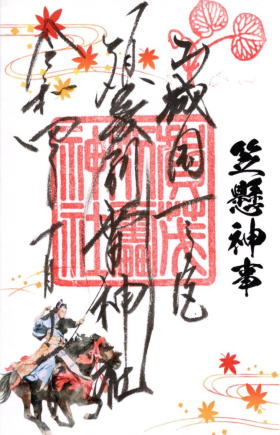 笠懸神事
山城国一之宮
賀茂別雷神社
令和四年十月
賀茂
別雷
神社